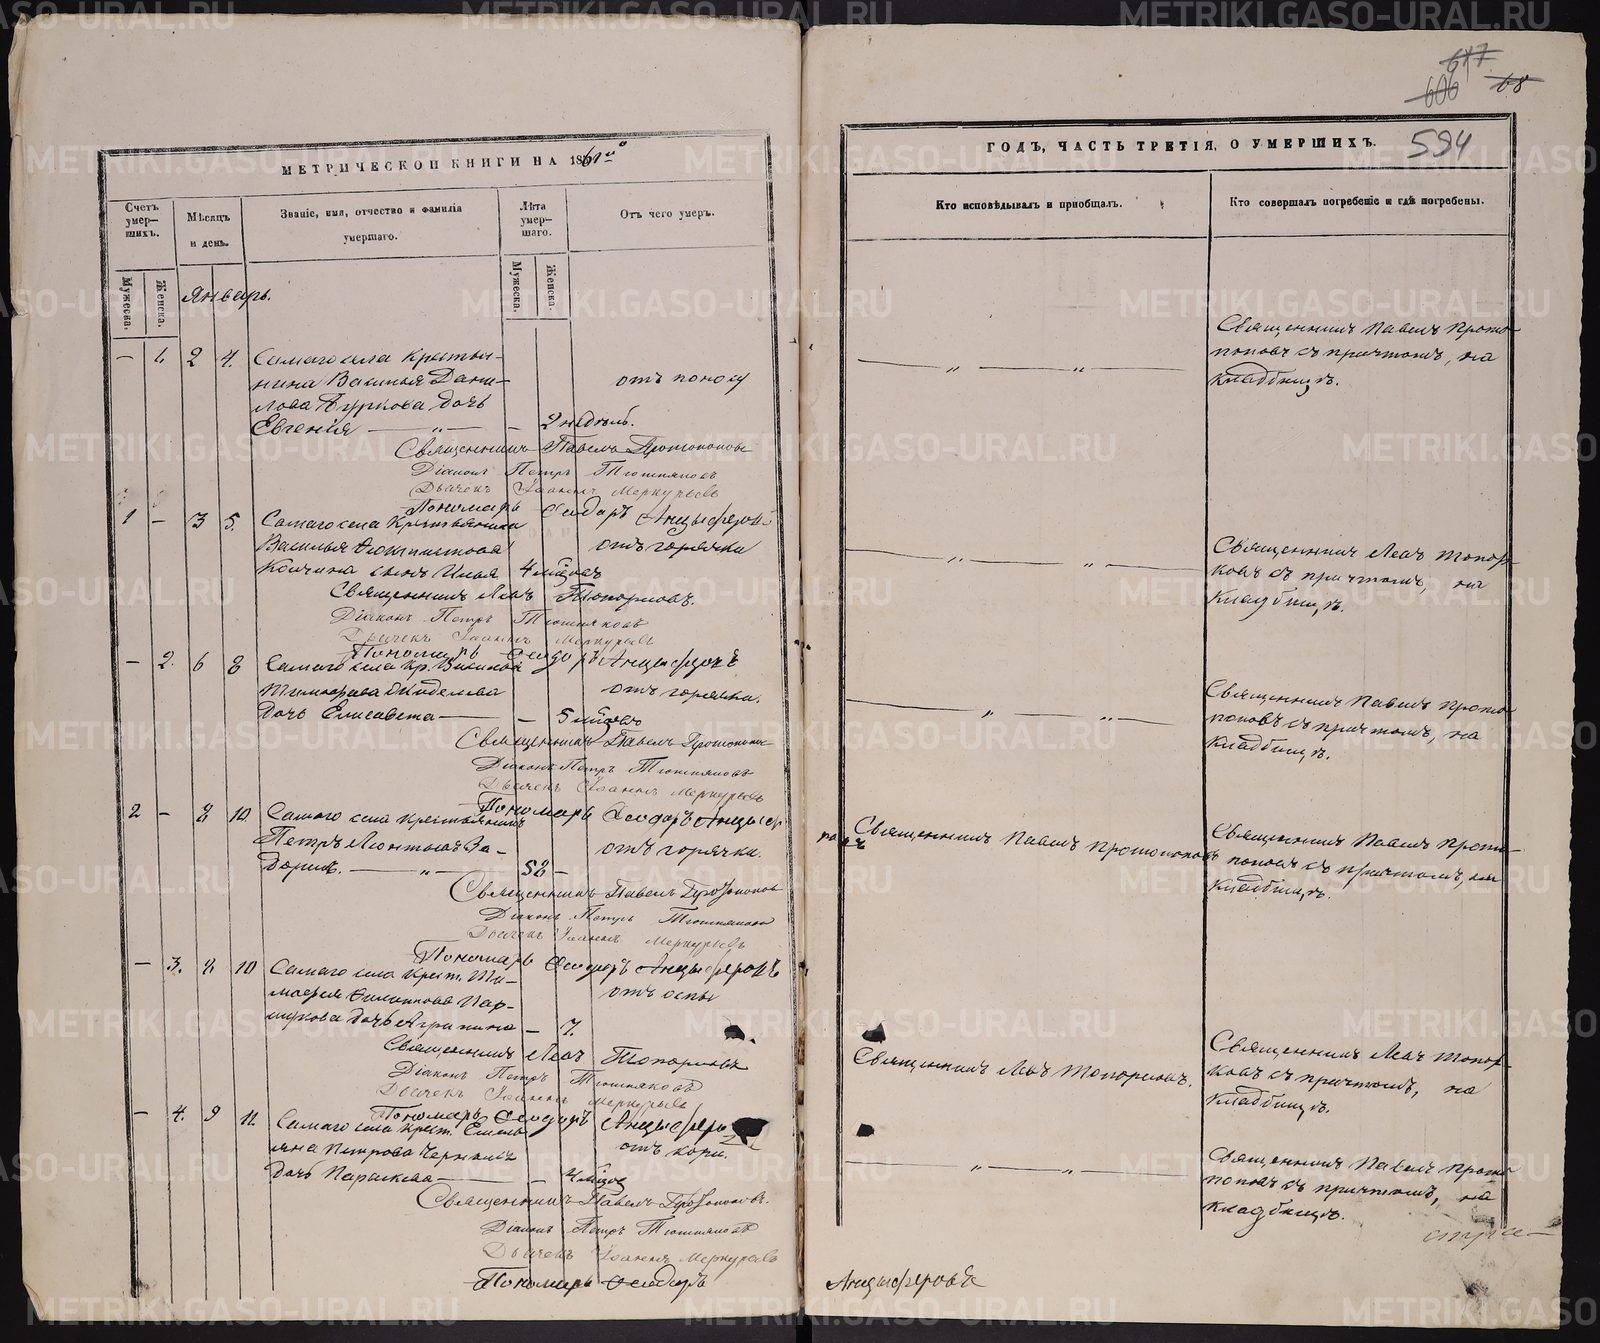 МЕТРИЧЕСКОЙ КНИГИ НА 1861й
Счетъ умер-шихъ.
Мѣсяцъ и день.
Званіе, имя, отчество и фамилія умершаго.
Лѣта умер-шаго.
Отъ чего умеръ.
Мужеска.
Женска.
Мужеска.
Женска.
Январь.
— 1. 2 4. Самаго села крестья-
нина Василья Дани- отъ поносу
лова дочь
Евгенія — „ — — 2 недѣль.
Священникъ Павелъ Протопоповъ
Діаконъ Петръ Тюшняковъ
Дьячекъ Іоаннъ Меркурьевъ
Пономарь Ѳеодоръ Анцыферовъ
1 — 3 5. Самаго села крестьянина
Василья отъ горячки
сынъ Илья 4 мѣсяцъ
Священникъ Левъ Топорковъ.
Діаконъ Петръ Тюшняковъ
Дьячекъ Іоаннъ Меркурьевъ
Пономарь Ѳеодоръ Анцыферовъ
— 2. 6 8 Самаго села кр.
Тимофеева отъ горячки.
дочь Елисавета — — 5 мѣсяцъ
Священникъ Павелъ Протопоповъ
Діаконъ Петръ Тюшняковъ
Дьячекъ Іоаннъ Меркурьевъ
Пономарь Ѳеодоръ Анцыфе
2 — 8 10. Самаго села крестьянинъ
Петръ Леонтьевъ За- отъ горячки.
— „ — 52 —
Священникъ Павелъ Протопопов
Діаконъ Петръ Тюшняковъ
Дьячекъ Іоаннъ Меркурьевъ
Пономарь Ѳеодоръ Анцыферовъ
— 3. 8 10 Самаго села крест. Ти-
мофея Филиппова Пар- отъ оспы
шукова дочь Агрипина — 7.
Священникъ Левъ Топорковъ
Діаконъ Петръ Тюшняковъ
Дьячекъ Іоаннъ Меркурьевъ
Пономарь Ѳеодоръ Анцыферо
— 4. 9 11. Самаго села крест. Емель-
яна Петрова отъ кори.
дочь Параскева — — 4 мѣсяц
Священникъ Павелъ Протопоповъ.
Діаконъ Петръ Тюшняковъ
Дьячекъ Іоаннъ Меркурьевъ
Пономарь Ѳеодоръ
617
606
68
594
ГОДЪ, ЧАСТЬ ТРЕТІЯ, О УМЕРШИХЪ.
Кто исповѣдывалъ и пріобщалъ.
Кто совершалъ погребеніе и гдѣ погребены.
— „ — „ — Священникъ Павелъ Прото-
поповъ съ причтомъ, на
кладбищѣ.
— „ — „ — Священникъ Левъ Топор-
ковъ съ причтомъ, на
кладбищѣ.
— „ — „ — Священникъ Павелъ Прото-
поповъ съ причтомъ, на
кладбищѣ.
ровъ
Священникъ Павелъ Протопоповъ
Священникъ Павелъ Прото-
поповъ съ причтомъ, на
кладбищѣ.
Священникъ Левъ Топорковъ.
Священникъ Левъ Топор-
ковъ съ причтомъ, на
кладбищѣ.
— „ — „ — Священникъ Павелъ Прото-
поповъ съ причтомъ, на
кладбищѣ.
Анцыферовъ
METRIKI.GASO-URAL.RU